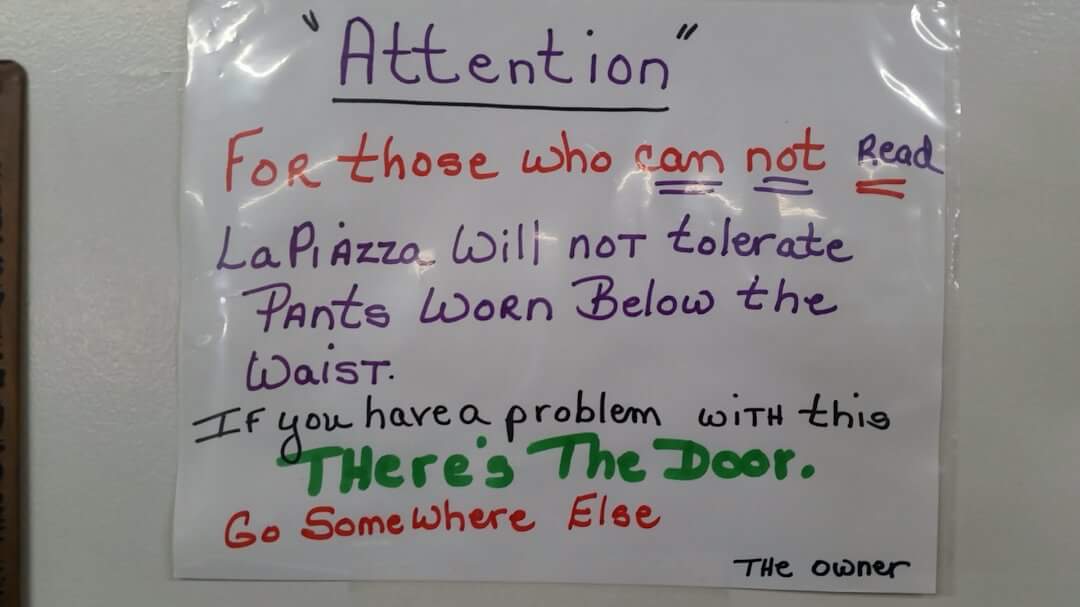 "Attention"
FOR those who can not Read
La PiAzza Will noT tolerate
PAnts WoRn Below the
WaisT.
IF you have a problem wiTH this
THere's The Door.
Go SomeWhere Else
THe owner